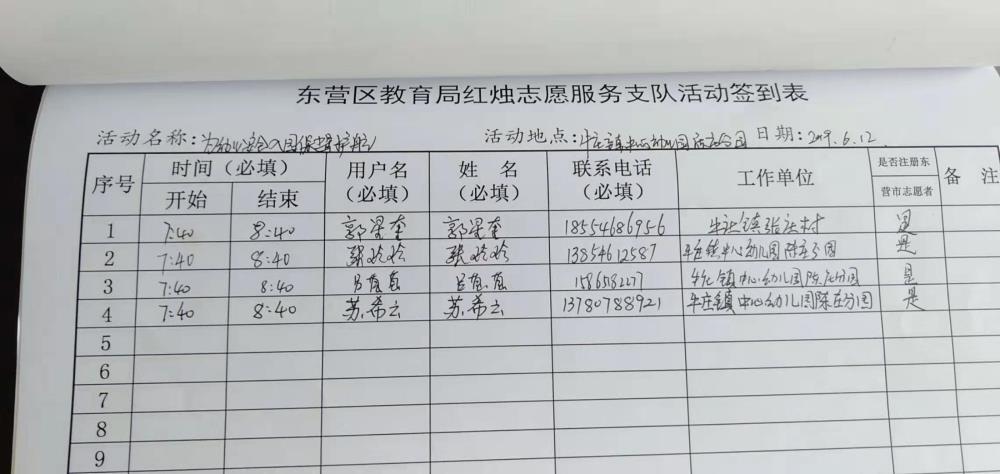 东营区教育局红烛志愿服务支队活动签到表
活动名称:为幼儿安全入园保驾护航 活动地点:牛庄镇中心幼儿园陈庄分园 日期:2019.6.12
序号 时间(必填) 用户名(必填) 姓名(必填) 联系电话(必填) 工作单位 是否注册东营市志愿者 备注
开始 结束
1 7:40 8:40 郭梁奎 郭梁奎 18554686956 牛庄镇张庄村 是
2 7:40 8:40 张玲玲 张玲玲 13854612587 牛庄镇中心幼儿园陈庄分园 是
3 7:40 8:40 吕 吕 158658227 牛庄镇中心幼儿园陈庄分园 是
4 7:40 8:40 苏希云 苏希云 13780788921 牛庄镇中心幼儿园陈庄分园 是
5
6
7
8
9